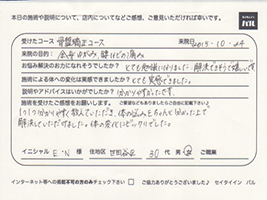 本日の施術や説明について、店内についてなどご感想、ご意見いただければ幸いです。
バル
受けたコース 骨盤矯正コース 来院日 2015・10・24
来院の目的: 全身のゆがみ、腰などの痛み
お悩み解決のお力になれそうでしたか? とても気持ちよかったです。解決できそうで嬉しいです
施術による体への変化は実感できましたか? とても実感できました。
説明やアドバイスはいかがでしたか? 分かりやすかったです。
施術を受けたご感想をお願いします。
1つ1つ分かりやすく教えていただき、体の悩みをちゃんと分かった上で
解決していただけました。体の変化にビックリでした。
イニシャル E・N 様 住地区 世田谷区 30代 男 女 ご職業
インターネット等への掲載不可の方のみチェック下さい □ ご協力ありがとうございました♪ セイタイイン バル